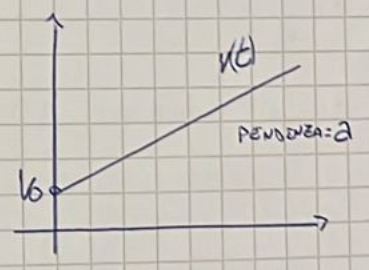 v(t)
PENDENZA=a
V0